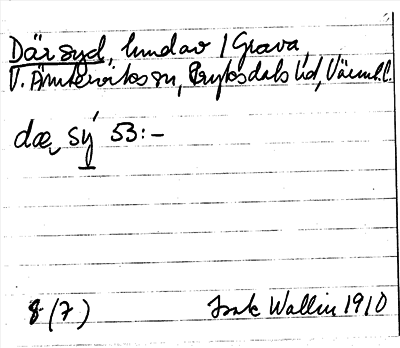 Där syd, hmdav / Grava,
V. Ämterviks sn, Fryksdals hd, Värml.l.
dæ, sý 53:-
8 (7) Isak Wallin 1910